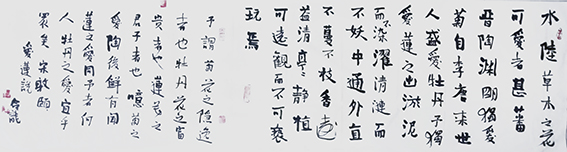 水陸草木之花
可愛者甚蕃
晉陶淵明獨愛
菊自李唐来世
人盛愛牡丹予獨
愛蓮之出淤泥
而不染濯清漣而
不妖中通外直
不蔓不枝香遠
益清亭亭静植
可遠觀而不可褻
玩焉
予謂菊花之隱逸
者也牡丹花之富
貴者也蓮花之
君子者也噫菊之
愛陶後鮮有聞
蓮之愛同予者何
人牡丹之愛宜乎
衆矣 宋敦頤
愛蓮說